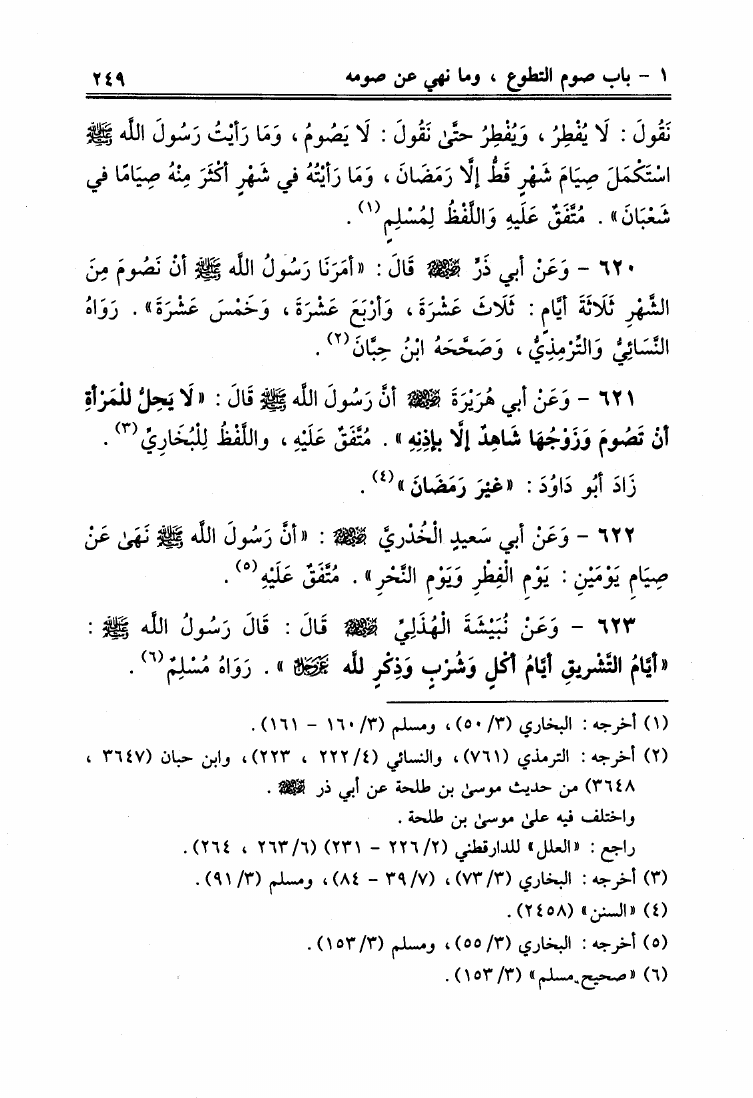 ١ - باب صوم التطوع ، وما نهي عن صومه ٢٤٩
نَقُولَ : لَا يُفْطِرُ ، وَيُفْطِرُ حتَّىٰ نَقُولَ : لَا يَصُومُ ، وَمَا رَأَيْتُ رَسُولَ اللَّه ﷺ
اسْتَكْمَلَ صِيَامَ شَهْرٍ قَطُّ إلَّا رَمَضَانَ ، وَمَا رَأَيْتُهُ في شَهْرٍ أكْثَرَ مِنْهُ صِيَامًا في
شَعْبَانَ» . مُتَّفَقٌ عَلَيهِ وَاللَّفْظُ لِمُسْلِمٍ(١) .
٦٢٠ - وَعَنْ أبي ذَرٍّ رضي الله عنه قَالَ : «أمَرَنَا رَسُولُ اللَّه ﷺ أنْ نَصُومَ مِنَ
الشَّهْرِ ثَلَاثَةَ أيَّامٍ : ثَلَاثَ عَشْرَةَ ، وَأرْبَعَ عَشْرَةَ ، وَخَمْسَ عَشْرَةَ» . رَوَاهُ
النَّسَائِيُّ وَالتِّرْمِذِيُّ ، وَصَحَّحَهُ ابْنُ حِبَّانَ(٢) .
٦٢١ - وَعَنْ أبي هُرَيْرَةَ رضي الله عنه أنَّ رَسُولَ اللَّه ﷺ قَالَ : «لَا يَحِلُّ لِلْمَرْأةِ
أنْ تَصُومَ وَزَوْجُهَا شَاهِدٌ إلَّا بإذْنِهِ» . مُتَّفَقٌ عَلَيْهِ ، واللَّفْظُ لِلْبُخَاريِّ(٣) .
زَادَ أبُو دَاوُدَ : «غيْرَ رَمَضَانَ»(٤) .
٦٢٢ - وَعَنْ أبي سَعيدٍ الْخُدْريَّ رضي الله عنه : «أنَّ رَسُولَ اللَّه ﷺ نَهَىٰ عَنْ
صِيَامِ يَوْمَيْنِ : يَوْمِ الْفِطْرِ وَيَوْمِ النَّحْرِ» . مُتَّفَقٌ عَلَيْهِ(٥) .
٦٢٣ - وَعَنْ نُبَيْشَةَ الْهُذَلِيِّ رضي الله عنه قَالَ : قَالَ رَسُولُ اللَّه ﷺ :
«أيَّامُ التَّشْريقِ أيَّامُ أكْلٍ وَشُرْبٍ وَذِكْرٍ للَّه عز وجل» . رَوَاهُ مُسْلِمٌ(٦) .
(١) أخرجه : البخاري (٣/ ٥٠) ، ومسلم (٣/ ١٦٠ - ١٦١) .
(٢) أخرجه : الترمذي (٧٦١) ، والنسائي (٤/ ٢٢٢ ، ٢٢٣) ، وابن حبان (٣٦٤٧ ،
٣٦٤٨) من حديث موسىٰ بن طلحة عن أبي ذر رضي الله عنه .
واختلف فيه علىٰ موسىٰ بن طلحة .
راجع : «العلل» للدارقطني (٢/ ٢٢٦ - ٢٣١) (٦/ ٢٦٣ ، ٢٦٤) .
(٣) أخرجه : البخاري (٣/ ٧٣) ، (٧/ ٣٩ - ٨٤) ، ومسلم (٣/ ٩١) .
(٤) «السنن» (٢٤٥٨) .
(٥) أخرجه : البخاري (٣/ ٥٥) ، ومسلم (٣/ ١٥٣) .
(٦) «صحيح مسلم» (٣/ ١٥٣) .